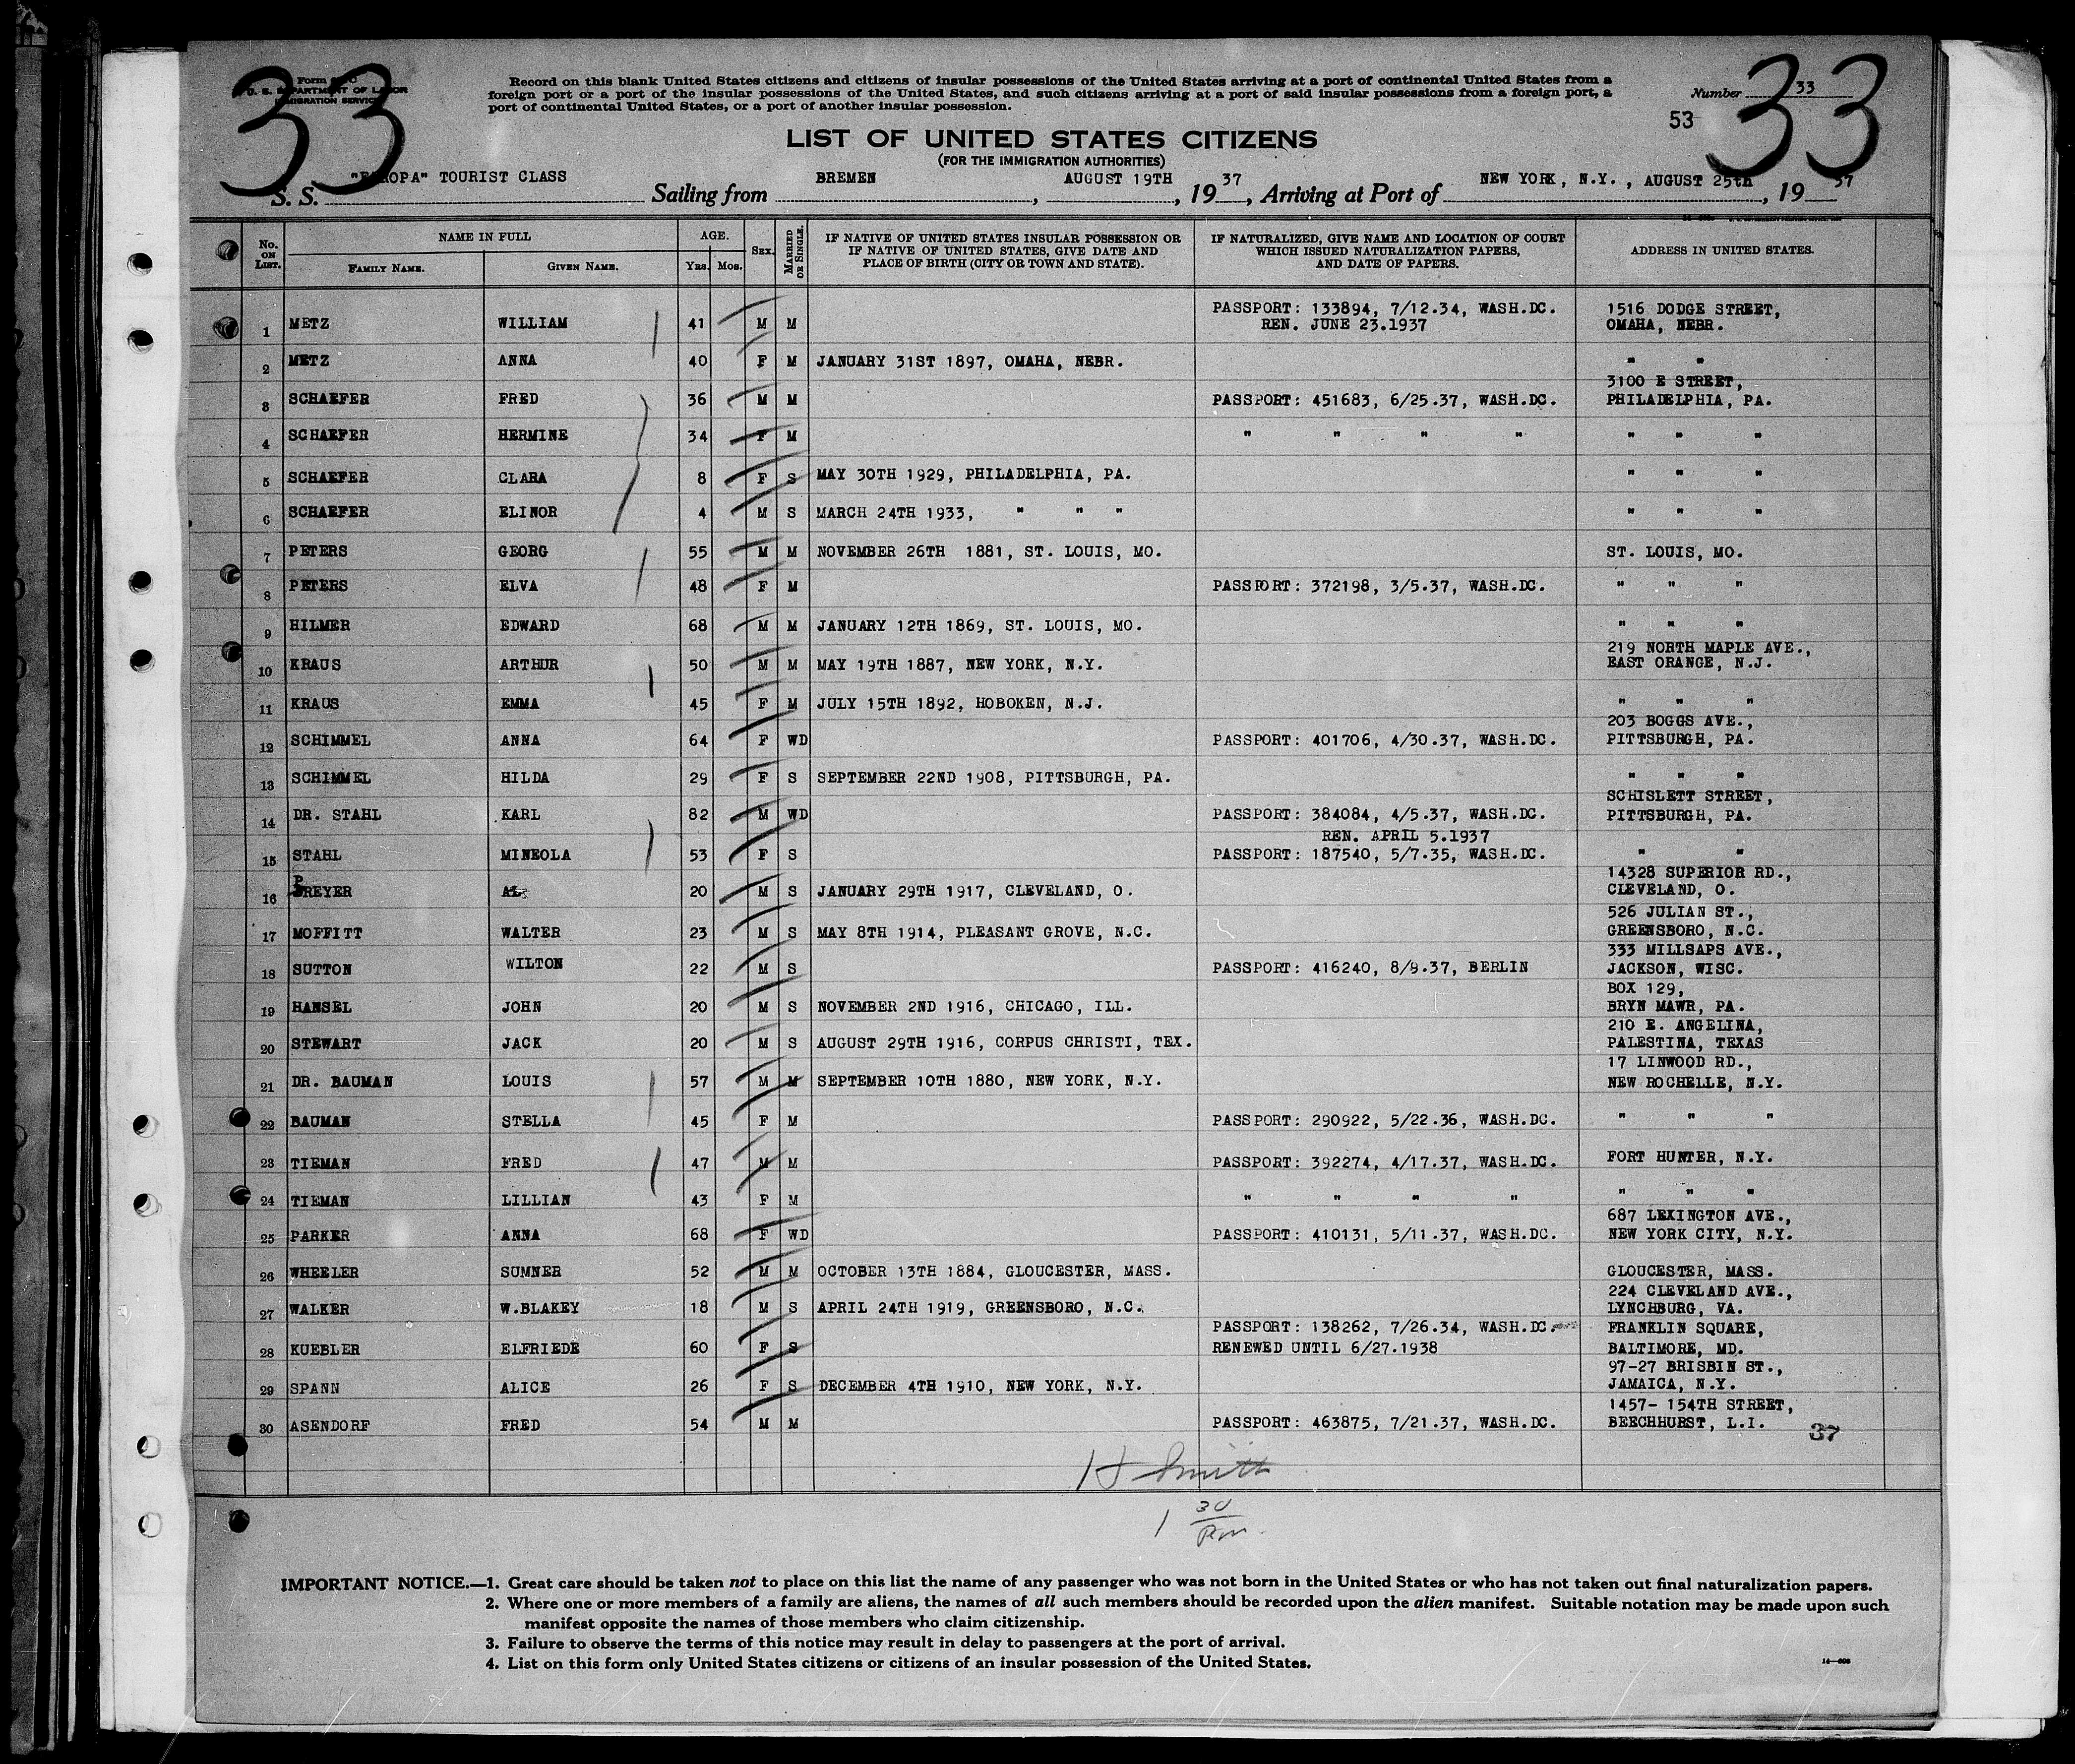 33
Form 630
U. S. DEPARTMENT OF LABOR
IMMIGRATION SERVICE
Record on this blank United States citizens and citizens of insular possessions of the United States arriving at a port of continental United States from a
foreign port or a port of the insular possessions of the United States, and such citizens arriving at a port of said insular possessions from a foreign port, a
port of continental United States, or a port of another insular possession.
Number 33
53
33
LIST OF UNITED STATES CITIZENS
(FOR THE IMMIGRATION AUTHORITIES)
S. S. "EUROPA" TOURIST CLASS Sailing from BREMEN, AUGUST 19TH, 1937, Arriving at Port of NEW YORK, N.Y., AUGUST 25th, 1937
No. ON LIST. NAME IN FULL AGE. SEX. MARRIED OR SINGLE. IF NATIVE OF UNITED STATES INSULAR POSSESSION OR IF NATIVE OF UNITED STATES, GIVE DATE AND PLACE OF BIRTH (CITY OR TOWN AND STATE). IF NATURALIZED, GIVE NAME AND LOCATION OF COURT WHICH ISSUED NATURALIZATION PAPERS, AND DATE OF PAPERS. ADDRESS IN UNITED STATES.
FAMILY NAME. GIVEN NAME. YRS. MOS.
1 METZ WILLIAM 41 M M PASSPORT: 133894, 7/12.34, WASH.DC. REN. JUNE 23.1937 1516 DODGE STREET, OMAHA, NEBR.
2 METZ ANNA 40 F M JANUARY 31ST 1897, OMAHA, NEBR. " "
3 SCHAEFER FRED 36 M M PASSPORT: 451683, 6/25.37, WASH.DC. 3100 E STREET, PHILADELPHIA, PA.
4 SCHAEFER HERMINE 34 F M " " " " " " "
5 SCHAEFER CLARA 8 F S MAY 30TH 1929, PHILADELPHIA, PA. " " "
6 SCHAEFER ELINOR 4 M S MARCH 24TH 1933, " " " " " "
7 PETERS GEORG 55 M M NOVEMBER 26TH 1881, ST. LOUIS, MO. ST. LOUIS, MO.
8 PETERS ELVA 48 F M PASSPORT: 372198, 3/5.37, WASH.DC. " " "
9 HILMER EDWARD 68 M M JANUARY 12TH 1869, ST. LOUIS, MO. " " "
10 KRAUS ARTHUR 50 M M MAY 19TH 1887, NEW YORK, N.Y. 219 NORTH MAPLE AVE., EAST ORANGE, N.J.
11 KRAUS EMMA 45 F M JULY 15TH 1892, HOBOKEN, N.J. " " "
12 SCHIMMEL ANNA 64 F WD PASSPORT: 401706, 4/30.37, WASH.DC. 203 BOGGS AVE., PITTSBURGH, PA.
13 SCHIMMEL HILDA 29 F S SEPTEMBER 22ND 1908, PITTSBURGH, PA. " " "
14 DR. STAHL KARL 82 M WD PASSPORT: 384084, 4/5.37, WASH.DC. SCHISLETT STREET, PITTSBURGH, PA.
15 STAHL MINEOLA 53 F S REN. APRIL 5.1937 PASSPORT: 187540, 5/7.35, WASH.DC. " "
16 PREYER AL 20 M S JANUARY 29TH 1917, CLEVELAND, O. 14328 SUPERIOR RD., CLEVELAND, O.
17 MOFFITT WALTER 23 M S MAY 8TH 1914, PLEASANT GROVE, N.C. 526 JULIAN ST., GREENSBORO, N.C.
18 SUTTON WILTON 22 M S PASSPORT: 416240, 8/9.37, BERLIN 333 MILLSAPS AVE., JACKSON, WISC.
19 HANSEL JOHN 20 M S NOVEMBER 2ND 1916, CHICAGO, ILL. BOX 129, BRYN MAWR, PA.
20 STEWART JACK 20 M S AUGUST 29TH 1916, CORPUS CHRISTI, TEX. 210 E. ANGELINA, PALESTINA, TEXAS
21 DR. BAUMAN LOUIS 57 M M SEPTEMBER 10TH 1880, NEW YORK, N.Y. 17 LINWOOD RD., NEW ROCHELLE, N.Y.
22 BAUMAN STELLA 45 F M PASSPORT: 290922, 5/22.36, WASH.DC. " " "
23 TIEMAN FRED 47 M M PASSPORT: 392274, 4/17.37, WASH.DC. FORT HUNTER, N.Y.
24 TIEMAN LILLIAN 43 F M " " " " " " "
25 PARKER ANNA 68 F WD PASSPORT: 410131, 5/11.37, WASH.DC. 687 LEXINGTON AVE., NEW YORK CITY, N.Y.
26 WHEELER SUMNER 52 M M OCTOBER 13TH 1884, GLOUCESTER, MASS. GLOUCESTER, MASS.
27 WALKER W.BLAKEY 18 M S APRIL 24TH 1919, GREENSBORO, N.C. 224 CLEVELAND AVE., LYNCHBURG, VA.
28 KUEBLER ELFRIEDE 60 F S PASSPORT: 138262, 7/26.34, WASH.DC. RENEWED UNTIL 6/27.1938 FRANKLIN SQUARE, BALTIMORE, MD.
29 SPANN ALICE 26 F S DECEMBER 4TH 1910, NEW YORK, N.Y. 97-27 BRISBIN ST., JAMAICA, N.Y.
30 ASENDORF FRED 54 M M PASSPORT: 463875, 7/21.37, WASH.DC. 1457- 154TH STREET, BEECHHURST, L.I.
37
H Smith
1 30 Pm.
IMPORTANT NOTICE.—1. Great care should be taken not to place on this list the name of any passenger who was not born in the United States or who has not taken out final naturalization papers.
2. Where one or more members of a family are aliens, the names of all such members should be recorded upon the alien manifest. Suitable notation may be made upon such
manifest opposite the names of those members who claim citizenship.
3. Failure to observe the terms of this notice may result in delay to passengers at the port of arrival.
4. List on this form only United States citizens or citizens of an insular possession of the United States.
14—608